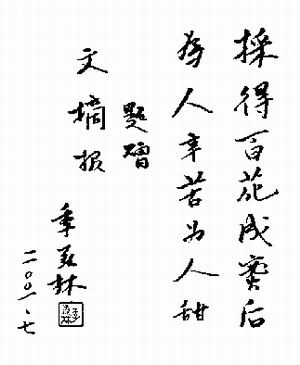 採得百花成蜜后
為人辛苦为人甜
题赠
文摘报
季羡林
二〇〇一、七